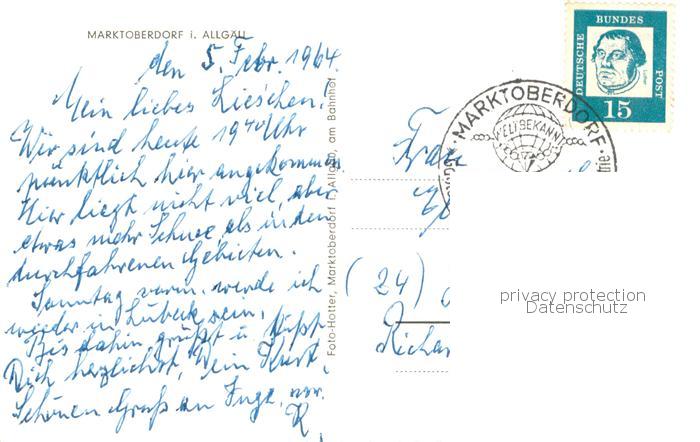 MARKTOBERDORF i. ALLGÄU
den 5. Febr. 1964.
Mein liebes Lieschen!
Wir sind heute 19⁴⁰ Uhr
pünktlich hier angekommen
Hier liegt nicht viel, aber
etwas mehr Schnee als in den
durchfahrenen Gebieten.
Sonntag vorm. werde ich
wieder in Lübeck sein.
Bis dahin grüßt u. küßt
Dich herzlichst, Dein Kurt,
Schönen Gruß an Inge,
Foto-Hotter, Marktoberdorf i. Allgäu, am Bahnhof
DEUTSCHE BUNDES POST
Luther
15
MARKTOBERDORF
WELTBEKANN
Frau
(24)
privacy protection
Datenschutz